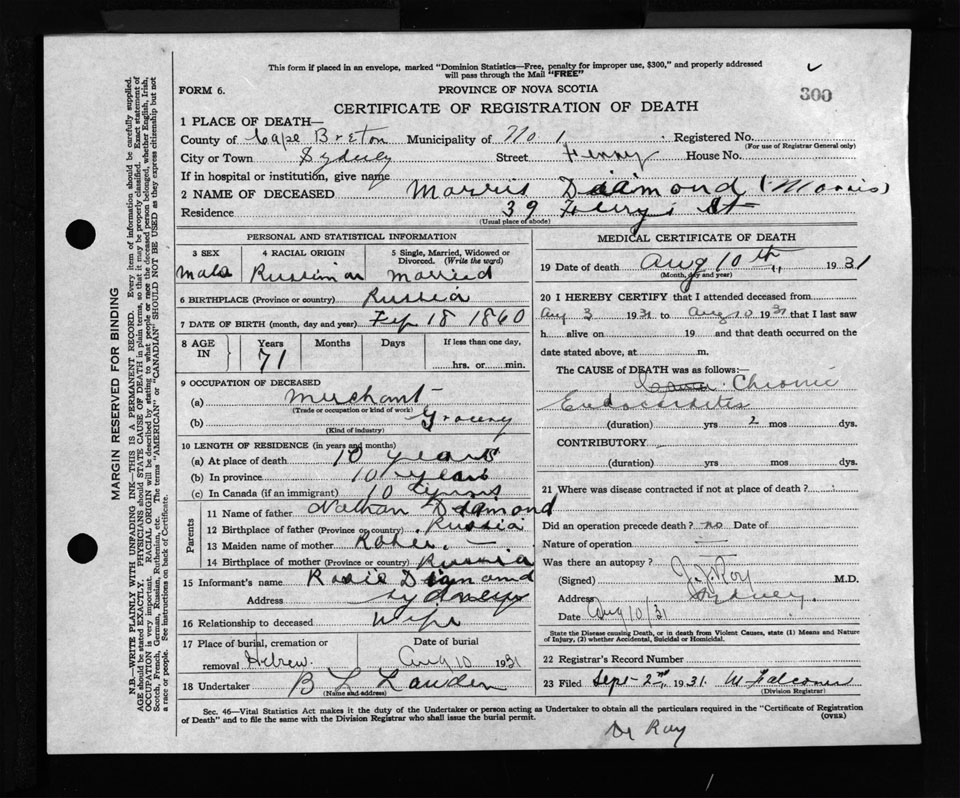 This form if placed in an envelope, marked "Dominion Statistics—Free, penalty for improper use, $300," and properly addressed
will pass through the Mail "FREE"
300
FORM 6.
PROVINCE OF NOVA SCOTIA
CERTIFICATE OF REGISTRATION OF DEATH
1 PLACE OF DEATH—
County of Cape Breton Municipality of No 1 Registered No.
(For use of Registrar General only)
City or Town Sydney Street Ferry House No.
If in hospital or institution, give name
2 NAME OF DECEASED Morris Diamond (Morris)
Residence 39 Ferry St
(Usual place of abode)
PERSONAL AND STATISTICAL INFORMATION
3 SEX
Male
4 RACIAL ORIGIN
Russian
5 Single, Married, Widowed or
Divorced. (Write the word)
Married
6 BIRTHPLACE (Province or country) Russia
7 DATE OF BIRTH (month, day and year) Feb 18 1860
8 AGE
IN
Years
71
Months
Days
If less than one day,
hrs. or min.
9 OCCUPATION OF DECEASED
(a) Merchant
(Trade or occupation or kind of work)
(b) Grocery
(Kind of industry)
10 LENGTH OF RESIDENCE (in years and months)
(a) At place of death 10 years
(b) In province 10 years
(c) In Canada (if an immigrant) 10 years
Parents
11 Name of father Nathan Diamond
12 Birthplace of father (Province or country) Russia
13 Maiden name of mother —
14 Birthplace of mother (Province or country) Russia
15 Informant's name Rosie Diamond
Address Sydney
16 Relationship to deceased Wife
17 Place of burial, cremation or
removal Hebrew.
Date of burial
Aug 10 1931
18 Undertaker B L Lauder
(Name and address)
MEDICAL CERTIFICATE OF DEATH
19 Date of death Aug 10th 1931
(Month, day and year)
20 I HEREBY CERTIFY that I attended deceased from
Aug 3 1931 to Aug 10 1931 that I last saw
h alive on 19 and that death occurred on the
date stated above, at m.
The CAUSE of DEATH was as follows:—
Chronic
Endocarditis
(duration) yrs 2 mos dys.
CONTRIBUTORY
(duration) yrs mos dys.
21 Where was disease contracted if not at place of death?
Did an operation precede death? no Date of
Nature of operation —
Was there an autopsy? —
(Signed) Roy M.D.
Address Sydney.
Date Aug 10/31
State the Disease causing Death, or in death from Violent Causes, state (1) Means and Nature
of Injury, (2) whether Accidental, Suicidal or Homicidal.
22 Registrar's Record Number
23 Filed Sept-2nd 1931. M Falconer
(Division Registrar)
Sec. 46—Vital Statistics Act makes it the duty of the Undertaker or person acting as Undertaker to obtain all the particulars required in the "Certificate of Registration
of Death" and to file the same with the Division Registrar who shall issue the burial permit.
(OVER)
Dr Roy
MARGIN RESERVED FOR BINDING
N.B.—WRITE PLAINLY WITH UNFADING INK—THIS IS A PERMANENT RECORD. Every item of information should be carefully supplied.
AGE should be stated EXACTLY. PHYSICIANS should STATE CAUSE OF DEATH in plain terms, so that it may be properly classified. Exact statement of
OCCUPATION is very important. RACIAL ORIGIN will be described by stating to what people or race the deceased person belonged, whether English, Irish,
Scotch, French, German, Russian, Ruthenian, etc. The terms "AMERICAN" or "CANADIAN" SHOULD NOT BE USED as they express citizenship but not
a race or people. See instructions on back of Certificate.